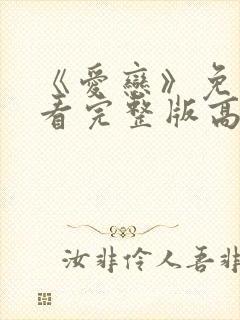 《愛戀》免
看完整版高
汝非伶人吾非